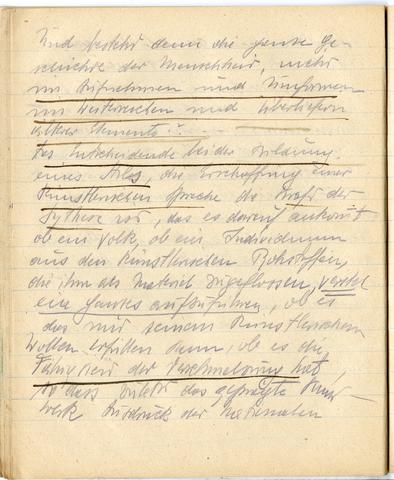 Und besteht denn die ganze Ge-
schichte der Menschheid, nicht
im Aufnehmen und Umformen
im Weiterreichen und Überliefern
älterer Elemente? ...
Das Entscheidende bei der Bildung
eines Stiles, die Erschaffung einer
Künstlerischen Sprache die Kraft der
Sythese ist, das es darauf ankommt
ob ein Volk, ob ein Individuum
aus den Künstlerischen Rohstoffen,
die ihm als Material zugeflossen, verstet
ein Ganzes aufzuführen, ob es
das mit seinem Künstlerischen
Wollen erfüllen kann, ob es die
Fähigkeit der Verschmelzung hat,
so dass das geprägte Kunst-
werk Ausdruck der Nationalen